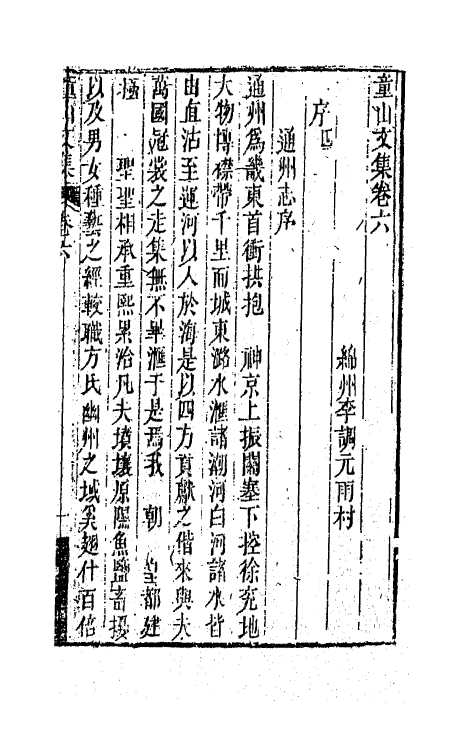 童山文集卷六
緜州李調元雨村
序四
通州志序
通州為畿東首衝拱抱 神京上振關塞下控徐兗地
大物博襟帶千里而城東潞水滙諸潮河白河諸水皆
由直沽至運河以入於海是以四方貢獻之偕來與夫
萬國冠裳之走集無不畢滙于是焉我 朝 定都建
極 聖聖相承重熙累洽凡夫墳壤原隰魚鹽畜擾
以及男女種藝之經較職方氏幽州之域奚翅什百倍
童山文集 卷六 一